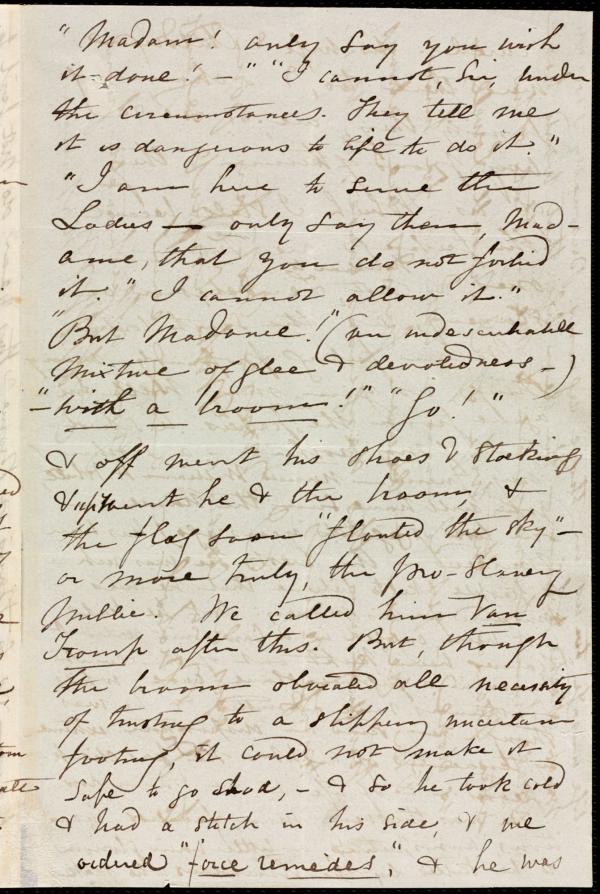 "Madam! only say you wish
it done! - " "I cannot, Sir, under
the circumstances. They tell me
it is dangerous to life to do it."
"I am here to serve the
Ladies — only say then, Mad-
ame, that you do not forbid
it." "I cannot allow it."
"But Madame!" (an indescribable
mixture of glee & devotedness -)
"- with a broom!" "Go!"
& off went his shoes & stockings
& up went he & the broom, &
the flag soon "flouted the sky" -
or more truly, the pro-slavery
public. We called him Van
Tromp after this. But, though
the broom obviated all necessity
of trusting to a slippery uncertain
footing, it could not make it
safe to go shod, - & so he took cold
& had a stitch in his side, & we
ordered "force remedes", & he was